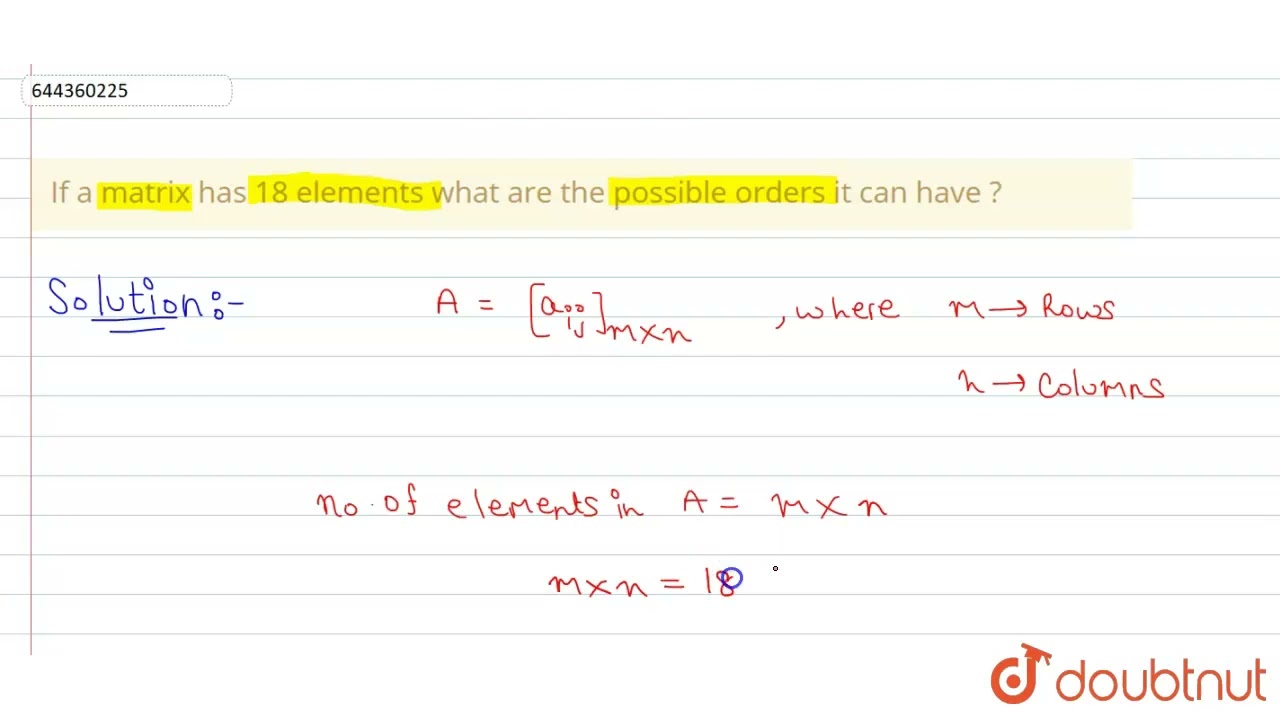 644360225
If a matrix has 18 elements what are the possible orders it can have ?
Solution:-
A = [aij]m×n , where m → Rows
n → Columns
no. of elements in A = m × n
m × n = 18
doubtnut